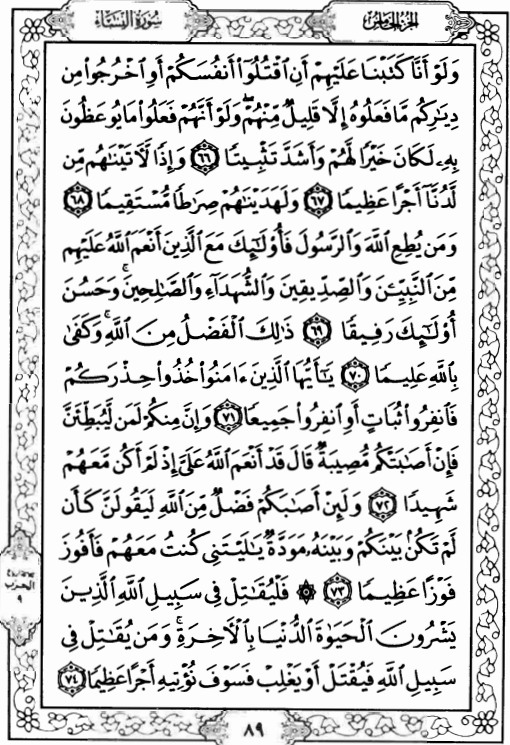 الجزء الخامس
سورة النساء
وَلَوْ أَنَّا كَتَبْنَا عَلَيْهِمْ أَنِ ٱقْتُلُوٓا۟ أَنفُسَكُمْ أَوِ ٱخْرُجُوا۟ مِن
دِيَٰرِكُم مَّا فَعَلُوهُ إِلَّا قَلِيلٌ مِّنْهُمْ ۖ وَلَوْ أَنَّهُمْ فَعَلُوا۟ مَا يُوعَظُونَ
بِهِۦ لَكَانَ خَيْرًا لَّهُمْ وَأَشَدَّ تَثْبِيتًا ٦٦ وَإِذًا لَّءَاتَيْنَٰهُم مِّن
لَّدُنَّآ أَجْرًا عَظِيمًا ٦٧ وَلَهَدَيْنَٰهُمْ صِرَٰطًا مُّسْتَقِيمًا ٦٨
وَمَن يُطِعِ ٱللَّهَ وَٱلرَّسُولَ فَأُو۟لَٰٓئِكَ مَعَ ٱلَّذِينَ أَنْعَمَ ٱللَّهُ عَلَيْهِم
مِّنَ ٱلنَّبِيِّۦنَ وَٱلصِّدِّيقِينَ وَٱلشُّهَدَآءِ وَٱلصَّٰلِحِينَ ۚ وَحَسُنَ
أُو۟لَٰٓئِكَ رَفِيقًا ٦٩ ذَٰلِكَ ٱلْفَضْلُ مِنَ ٱللَّهِ ۚ وَكَفَىٰ
بِٱللَّهِ عَلِيمًا ٧٠ يَٰٓأَيُّهَا ٱلَّذِينَ ءَامَنُوا۟ خُذُوا۟ حِذْرَكُمْ
فَٱنفِرُوا۟ ثُبَاتٍ أَوِ ٱنفِرُوا۟ جَمِيعًا ٧١ وَإِنَّ مِنكُمْ لَمَن لَّيُبَطِّئَنَّ
فَإِنْ أَصَٰبَتْكُم مُّصِيبَةٌ قَالَ قَدْ أَنْعَمَ ٱللَّهُ عَلَىَّ إِذْ لَمْ أَكُن مَّعَهُمْ
شَهِيدًا ٧٢ وَلَئِنْ أَصَٰبَكُمْ فَضْلٌ مِّنَ ٱللَّهِ لَيَقُولَنَّ كَأَن
لَّمْ تَكُنۢ بَيْنَكُمْ وَبَيْنَهُۥ مَوَدَّةٌ يَٰلَيْتَنِى كُنتُ مَعَهُمْ فَأَفُوزَ
فَوْزًا عَظِيمًا ٧٣ ۞ فَلْيُقَٰتِلْ فِى سَبِيلِ ٱللَّهِ ٱلَّذِينَ
يَشْرُونَ ٱلْحَيَوٰةَ ٱلدُّنْيَا بِٱلْءَاخِرَةِ ۚ وَمَن يُقَٰتِلْ فِى
سَبِيلِ ٱللَّهِ فَيُقْتَلْ أَوْ يَغْلِبْ فَسَوْفَ نُؤْتِيهِ أَجْرًا عَظِيمًا ٧٤
الحزب
٩
٨٩